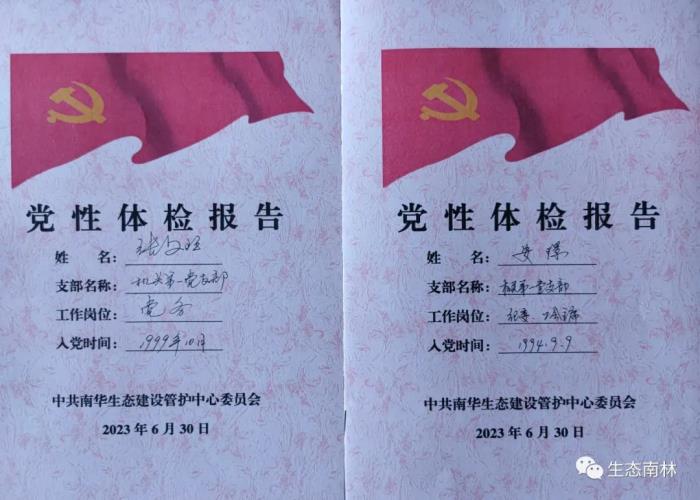 党性体检报告
姓 名：
支部名称：机关第一党支部
工作岗位：党务
入党时间：1999年10月
中共南华生态建设管护中心委员会
2023 年 6 月 30 日
党性体检报告
姓 名：安
支部名称：机关第一党支部
工作岗位：纪委、工会主席
入党时间：1994.9.9
中共南华生态建设管护中心委员会
2023 年 6 月 30 日
生态南林